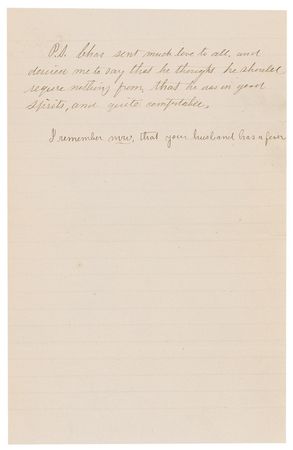 P.S. Chas sent much love to all, and
desired me to say that he thought he should
require nothing from, that he was in good
spirits, and quite comfortable.
I remember now, that your husband has a fever